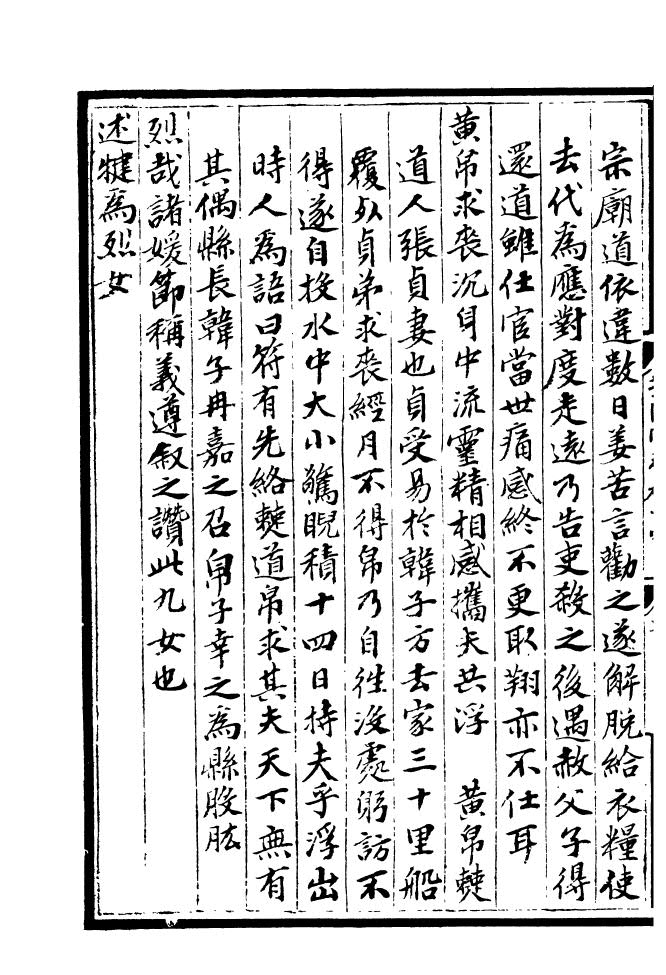 宗廟道依違數日姜苦言勸之遂解脫給衣糧使
去代為應對度走遠乃告吏殺之後遇赦父子得
還道雖仕官當世痛感終不更取翔亦不仕耳
黃帛求喪沉身中流靈精相感攜夫共浮 黃帛僰
道人張貞妻也貞受易於韓子方去家三十里船
覆死貞弟求喪經月不得帛乃自往沒處躬訪不
得遂自投水中大小驚睨積十四日持夫乎浮出
時人為語曰符有先絡僰道帛求其夫天下無有
其偶縣長韓子冉嘉之召帛子幸之為縣股肱
烈哉諸媛節稱義遵敘之讚此九女也
述犍為烈女